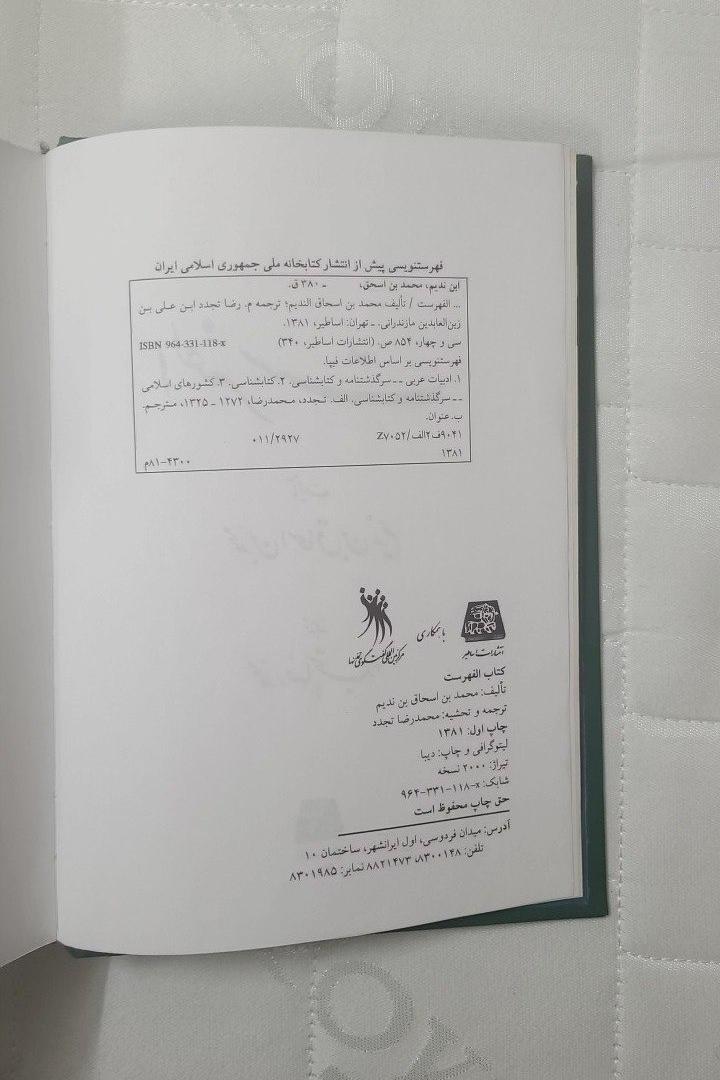 فهرستنویسی پیش از انتشار کتابخانه ملی جمهوری اسلامی ایران
ابن ندیم، محمد بن اسحق، ـ ۳۸۰ ق.
... الفهرست / تألیف محمد بن اسحاق الندیم؛ ترجمه م. رضا تجدد ابن علی بن
زین‌العابدین مازندرانی. ـ تهران: اساطیر، ۱۳۸۱.
سی و چهار، ۸۵۴ ص. (انتشارات اساطیر، ۳۴۰) ISBN 964-331-118-x
فهرستنویسی بر اساس اطلاعات فیپا.
۱. ادبیات عربی ـ ـ سرگذشتنامه و کتابشناسی. ۲. کتابشناسی. ۳. کشورهای اسلامی
ـ ـ سرگذشتنامه و کتابشناسی. الف. تجدد، محمدرضا، ۱۲۷۲ ـ ۱۳۲۵، مترجم.
ب. عنوان.
۹۰۴۱ف۲الف/Z۷۰۵۲ ۰۱۱/۲۹۲۷
۱۳۸۱ ۸۱-۴۳۰۰م
انتشارات اساطیر
با همکاری
مرکز بین‌المللی گفتگوی تمدنها
کتاب الفهرست
تألیف: محمد بن اسحاق بن ندیم
ترجمه و تحشیه: محمدرضا تجدد
چاپ اول: ۱۳۸۱
لیتوگرافی و چاپ: دیبا
تیراژ: ۲۰۰۰ نسخه
شابک: x-۹۶۴-۳۳۱-۱۱۸
حق چاپ محفوظ است
آدرس: میدان فردوسی، اول ایرانشهر، ساختمان ۱۰
تلفن: ۸۳۰۰۱۴۸، ۸۸۲۱۴۷۳ نمابر: ۸۳۰۱۹۸۵